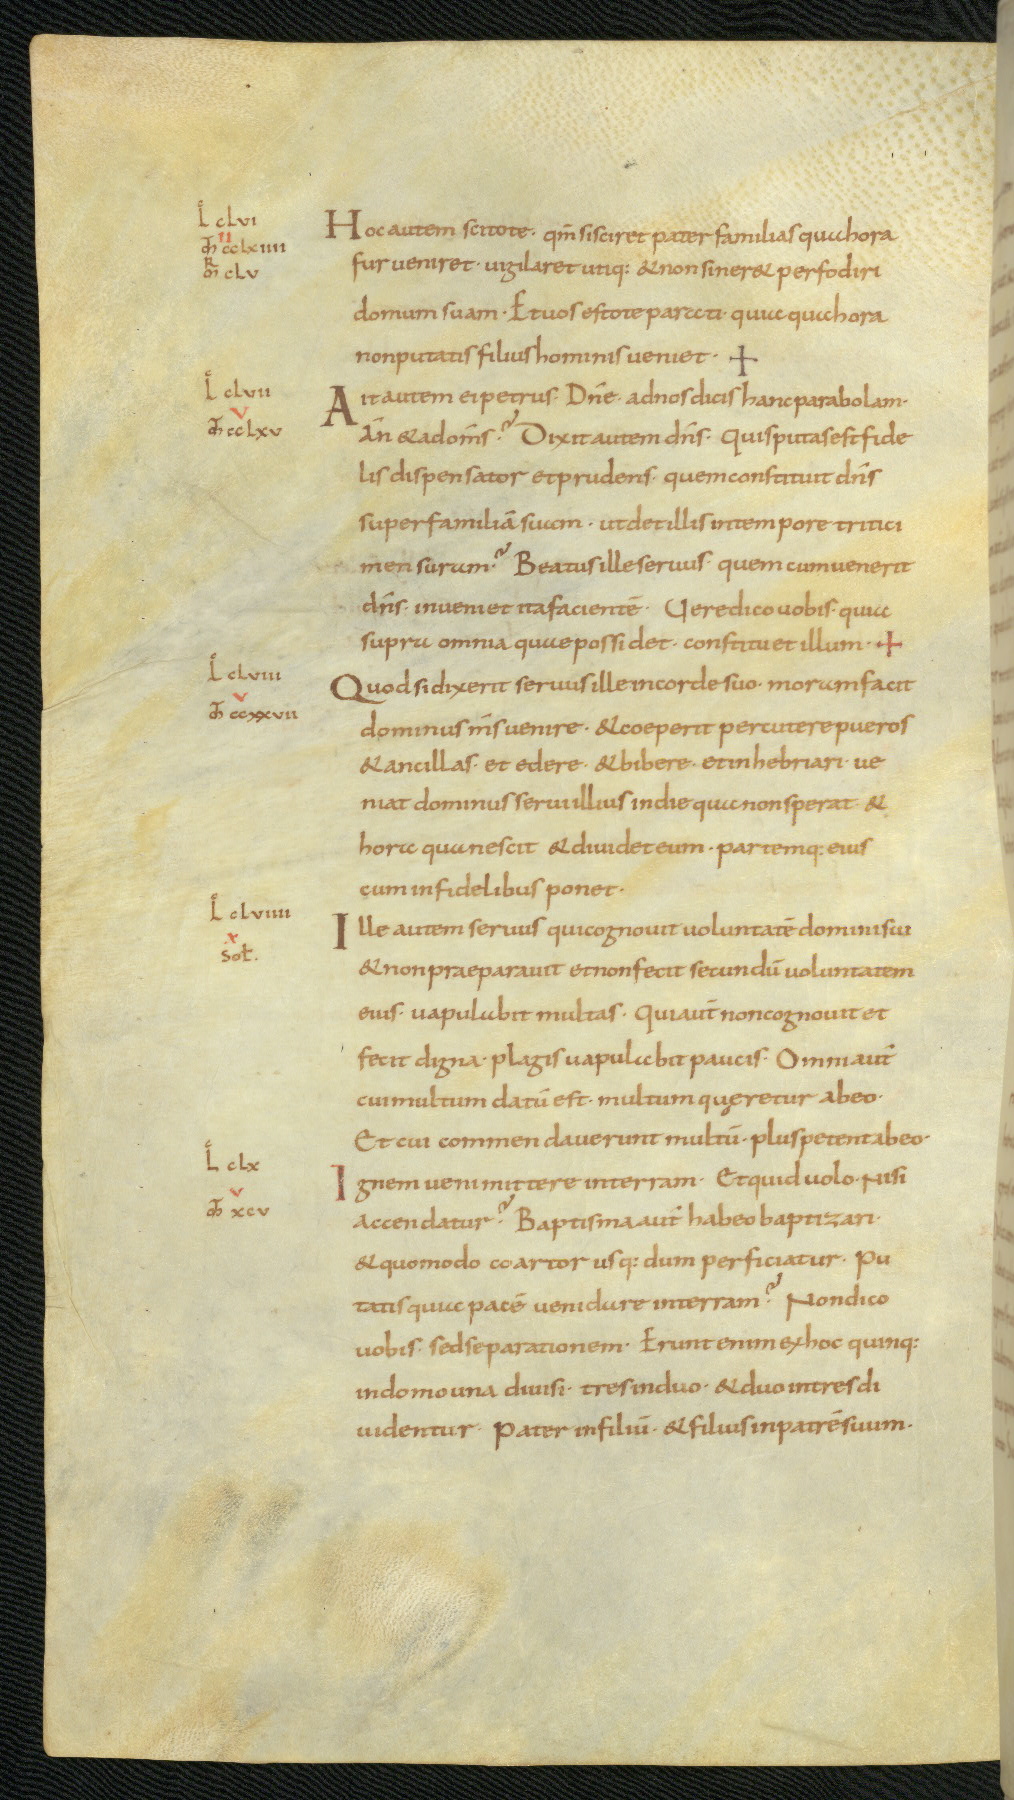 L clvi
II
M cclxiiii
R
M clv
Hoc autem scitote· qm̄ si sciret pater familias qua hora
fur veniret· vigilaret utiq: & non siner& perfodiri
domum suam· Et vos estote parati· quia qua hora
non putatis filius hominis veniet· +
L clvii
V
M cclxv
Ait autem ei petrus· Dn̄e· ad nos dicis hanc parabolam·
An̄ & ad om̄s? Dixit autem dn̄s· Quis putas est fide
lis dispensator et prudens· quem constituit dn̄s
super familiā suam· ut det illis in tempore tritici
mensuram? Beatus ille servus· quem cum venerit
dn̄s· inveniet ita facientē· Vere dico vobis· quia
supra omnia quae possidet· constituet illum· +
L clviii
V
M ccxxvii
Quod si dixerit servus ille in corde suo· moram facit
dominus m̄s venire· & coeperit percutere pueros
& ancillas· et edere· & bibere· et inhebriari· ve
niat dominus servi illius in die qua non sperat &
hora qua nescit & dividet eum· partemq: eius
cum infidelibus ponet·
L clviiii
X
Sol.
Ille autem servus qui cognovit voluntatē domini sui
& non praeparavit et non fecit secundū voluntatem
eius· vapulabit multas· Qui aut̄ non cognovit et
fecit digna· plagis vapulabit paucis· Omni aut̄
cui multum datū est· multum quęretur ab eo·
Et cui commendaverunt multū· plus petent ab eo·
L clx
V
M xcv
Ignem veni mittere in terram· Et quid volo· Nisi
accendatur? Baptisma aut̄ habeo baptizari·
& quomodo coartor usq: dum perficiatur· Pu
tatis quia pacē veni dare in terram? Non dico
vobis· sed separationem· Erunt enim ex hoc quinq:
in domo una divisi· tres in duo· & duo in tres di
videntur· Pater in filiū· & filius in patrē suum·